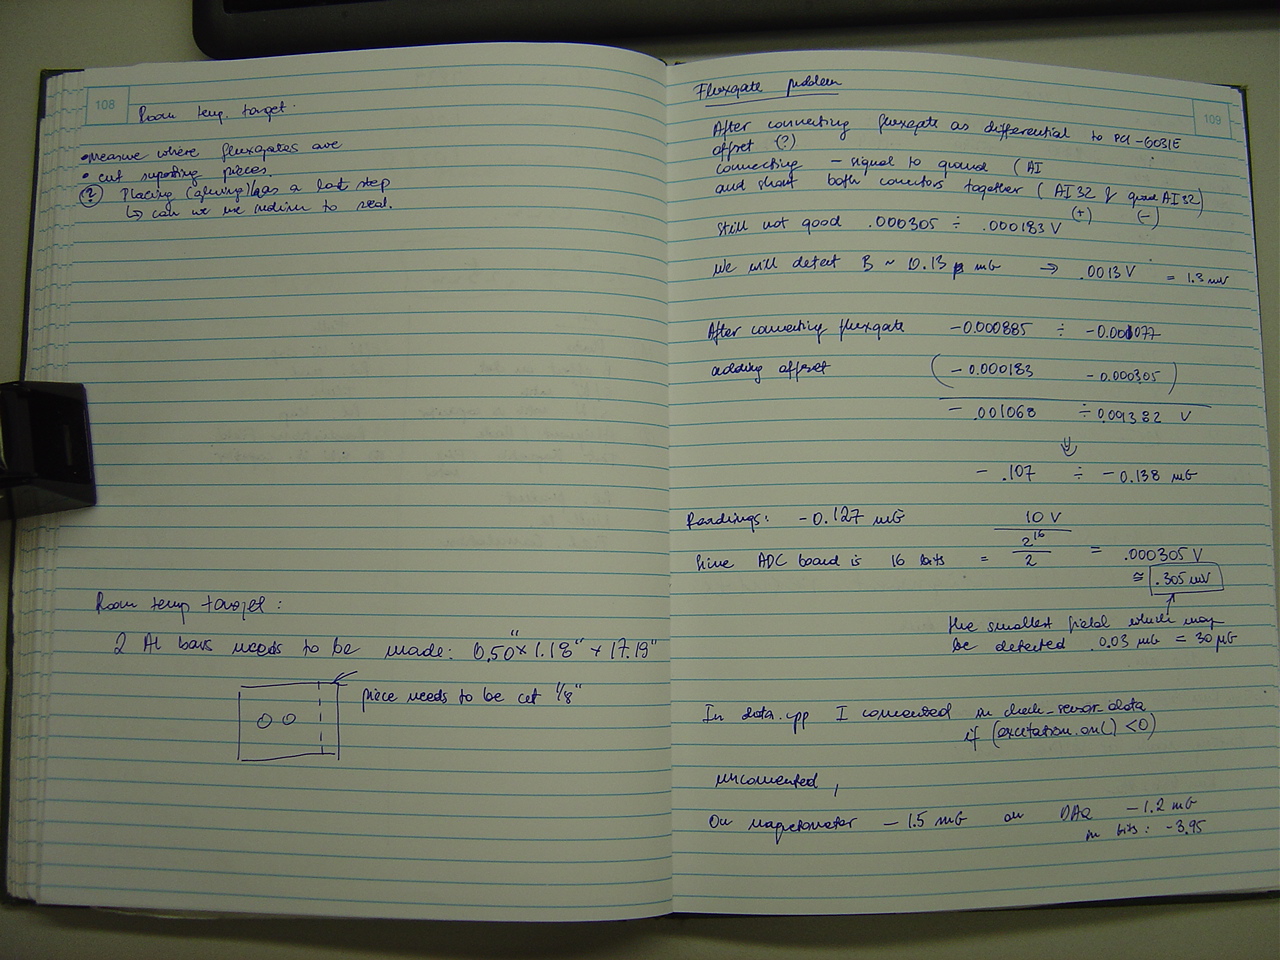 108
Room temp. target.
• Measure where fluxgates are
• cut suporting pieces.
? Placing (glueing) as a last step
↳ can we use indium to seal.
Room temp target:
2 Al bars needs to be made: 0.50" × 1.18" × 17.19"
piece needs to be cut 1/8"
109
Fluxgate problem
After connecting fluxgate as differential to PCI-6031E
offset (?)
connecting - signal to ground (AI
and short both conectors together (AI 32 & gnd AI 32)
(+) (-)
Still not good .000305 ÷ .000183 V
We will detect B ~ 10.13 mG → .0013 V = 1.3 mV
After connecting fluxgate -0.000885 ÷ -0.001077
adding offset (-0.000183 -0.000305)
- .001068 ÷ V
⇓
- .107 ÷ -0.138 mG
Readings: -0.127 mG
10 V
Since ADC board is 16 bits = 2^16 / 2 = .000305 V
≅ .305 mV
the smallest field which may
be detected 0.03 mG = 30 μG
In data.cpp I comented in check_sensor_data
if (excitation.on() <0)
uncomented,
On magnetometer - 1.5 mG on DAQ -1.2 mG
in bits: -3.95